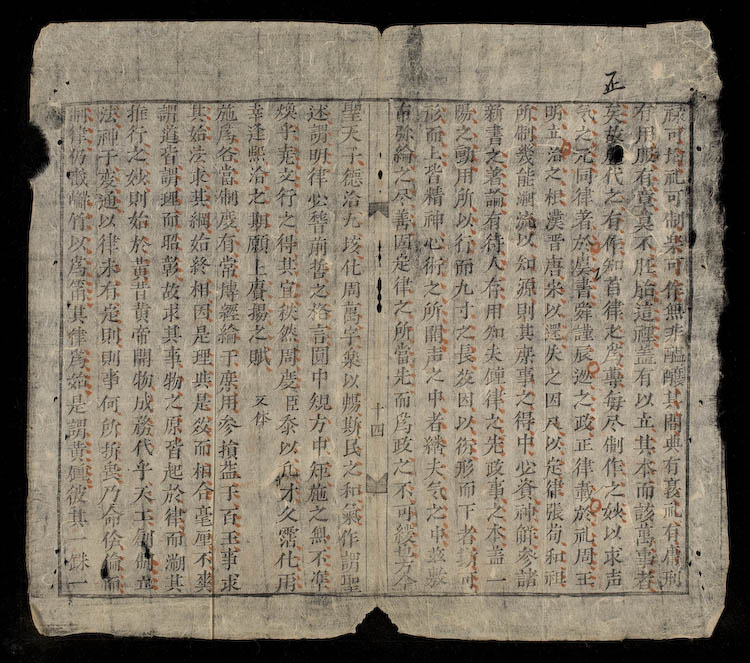 正
可拾祀可制樂可作無非醞釀其間典有祀有庸刑
有用服有章莫不胚胎這裡蓋有以立其本而該萬事者
矣故歷代之有作知首律之為尊每尽制作之妙以求声
气之元同律著於虞書舜謹辰巡之政正律載於礼周王
明立治之規漢晉唐宋以還失之因人以定律張荀和祖
所制幾能溯流以知源則其庶事之得中必資神解參諸
新書之著論有待人存用知夫鐘律之先政事之本盖一
陽之動用所以行而九寸之長茲因以衍形而下者易可
該而上皆精神心術之所開声之中者繇夫气之中蓋嚴
布弥綸之尽善因定律之所當先而為政之不可緩也方今
十四
聖天子德洽九垓化周萬宇樂以暢斯民之和氣作謂聖
述謂明律必督前哲之格言圓中規方中矩施之無不準
煥乎堯文行之得其宜秩然周度臣忝以凡才久霑化用
幸逢熙洽之期願上賡揚之賦 又体
施為咎當制度有常博經綸于庶用參損益于百王事求
其始法求其綱始終相因是理典是茲而相合毫厘不爽
謂道者謂理而昭彰故求其事物之原皆起於律而溯其
推行之妙則始於黃昔黃帝開物成務代乎天工創制立
法神于变通以律未有定則則事何所折衷乃命伶倫而
制律仿嶰竹以為筩其律為始是謂黃鍾彼其一銖一